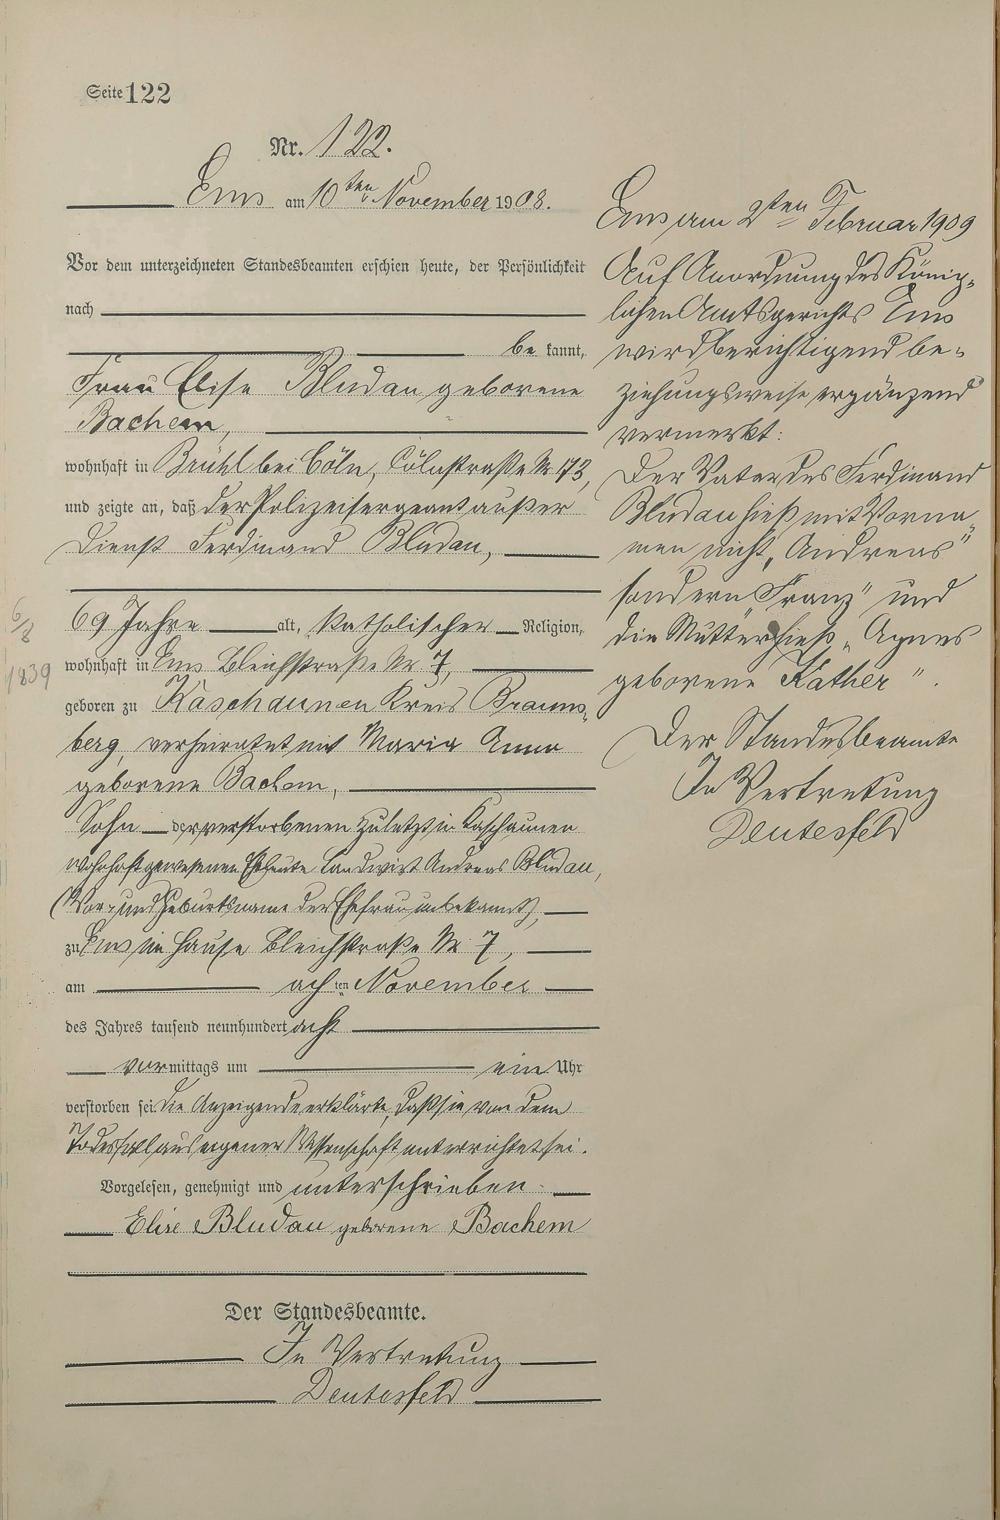 Seite 122
Nr. 122.
Ems am 10ten November 1908.
Vor dem unterzeichneten Standesbeamten erschien heute, der Persönlichkeit
nach
be kannt,
Frau Elise Bludau geborene
Bachem,
wohnhaft in Brühl bei Cöln, Cölnstraße Nr 173,
und zeigte an, daß der Polizeisergeant außer
Dienst Ferdinand Bludau,
69 Jahre alt, katholischer Religion,
wohnhaft in Ems Bleichstraße Nr. 7,
geboren zu Kaschaunen Kreis Brauns-
berg, verheiratet mit Maria Anna
geborene Bachem,
Sohn der verstorbenen zuletzt in Kaschaunen
wohnhaft gewesenen Eheleute Landwirt Andreas Bludau,
(Vor- und Geburtsname der Ehefrau unbekannt),
zu Ems im Hause Bleichstraße Nr 7,
am achten November
des Jahres tausend neunhundert acht
vormittags um ein Uhr
verstorben sei. Die Anzeigende erklärte, daß sie von dem
Todesfall aus eigener Wissenschaft unterrichtet sei.
Vorgelesen, genehmigt und unterschrieben.
Elise Bludau geborene Bachem
Der Standesbeamte.
In Vertretung
Deutesfeld
6/8
1839
Ems am 2ten Februar 1909
Auf Anordnung des König-
lichen Amtsgerichts Ems
wird berichtigend be-
ziehungsweise ergänzend
vermerkt:
Der Vater des Ferdinand
Bludau hieß mit Vorna-
men nicht „Andreas"
sondern „Franz" und
die Mutter hieß „Agnes
geborene Kather".
Der Standesbeamte
In Vertretung
Deutesfeld